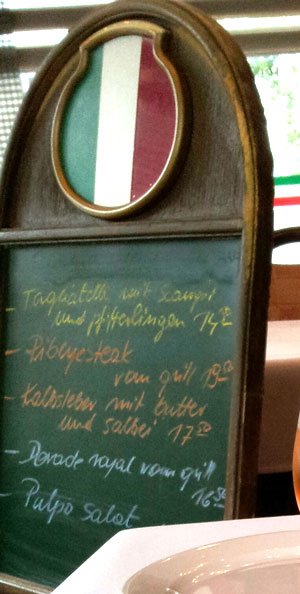 - Tagliatelle mit Scampi
und Pfifferlingen 14,50
- Ribeyesteak
vom grill 19,50
- Kalbsleber mit butter
und salbei 17,50
- Dorade royal vom grill
16,50
- Pulpo salat